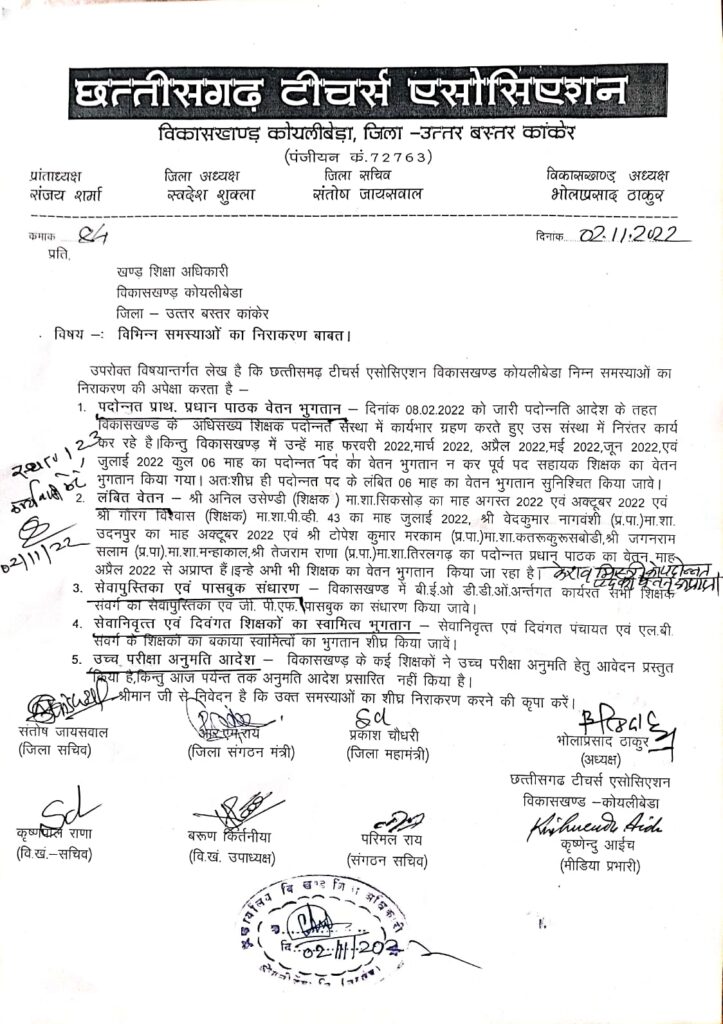 छत्तीसगढ़ टीचर्स एसोसिएशन
विकासखाण्ड कोयलीबेड़ा, जिला –उत्तर बस्तर कांकेर
(पंजीयन कं.72763)
प्रांताध्यक्ष जिला अध्यक्ष जिला सचिव विकासखाण्ड अध्यक्ष
संजय शर्मा स्वदेश शुक्ला संतोष जायसवाल भोलाप्रसाद ठाकुर
कमाक 84 दिनांक 02.11.2022
प्रति,
खण्ड शिक्षा अधिकारी
विकासखण्ड़ कोयलीबेडा
जिला – उत्तर बस्तर कांकेर
विषय –: विभिन्न समस्याओं का निराकरण बाबत।
उपरोक्त विषयान्तर्गत लेख है कि छत्तीसगढ़ टीचर्स एसोसिएशन विकासखण्ड कोयलीबेडा निम्न समस्याओं का
निराकरण की अपेक्षा करता है –
1. पदोन्नत प्राथ. प्रधान पाठक वेतन भुगतान – दिनांक 08.02.2022 को जारी पदोन्नति आदेश के तहत
विकासखण्ड के अधिसख्य शिक्षक पदोन्नत संस्था में कार्यभार ग्रहण करते हुए उस संस्था में निरंतर कार्य
कर रहे है।किन्तु विकासखण्ड में उन्हें माह फरवरी 2022,मार्च 2022, अप्रैल 2022,मई 2022,जून 2022,एवं
जुलाई 2022 कुल 06 माह का पदोन्नत पद का वेतन भुगतान न कर पूर्व पद सहायक शिक्षक का वेतन
भुगतान किया गया। अतःशीघ्र ही पदोन्नत पद के लंबित 06 माह का वेतन भुगतान सुनिश्चित किया जावे।
2. लंबित वेतन – श्री अनिल उसेण्डी (शिक्षक ) मा.शा.सिकसोड़ का माह अगस्त 2022 एवं अक्टूबर 2022 एवं
श्री गोरग विश्वास (शिक्षक) मा.शा.पी.व्ही. 43 का माह जुलाई 2022, श्री वेदकुमार नागवंशी (प्र.पा.)मा.शा.
उदनपुर का माह अक्टूबर 2022 एवं श्री टोपेश कुमार मरकाम (प्र.पा.)मा.शा.कतरूकुरूसबोडी,श्री जगनराम
सलाम (प्र.पा).मा.शा.मन्हाकाल,श्री तेजराम राणा (प्र.पा.)मा.शा.तिरलगढ़ का पदोन्नत प्रधान पाठक का वेतन माह
अप्रैल 2022 से अप्राप्त हैं।इन्हे अभी भी शिक्षक का वेतन भुगतान किया जा रहा है।
3. सेवापुस्तिका एवं पासबुक संधारण – विकासखण्ड में बी.ई.ओ डी.डी.ओं.अर्न्तगत कार्यरत सभी शिक्षक
संवर्ग का सेवापुस्तिका एवं जी. पी.एफ. पासबुक का संधारण किया जावे।
4. सेवानिवृत्त एवं दिवंगत शिक्षकों का स्वामित्व भुगतान – सेवानिवृत्त एवं दिवंगत पंचायत एवं एल.बी.
संवर्ग के शिक्षकों का बकाया स्वामित्वों का भुगतान शीघ्र किया जावें।
5. उच्च परीक्षा अनुमति आदेश – विकासखण्ड के कई शिक्षकों ने उच्च परीक्षा अनुमति हेतु आवेदन प्रस्तुत
किया है,किन्तु आज पर्यन्त तक अनुमति आदेश प्रसारित नहीं किया है।
श्रीमान जी से निवेदन है कि उक्त समस्याओं का शीघ्र निराकरण करने की कृपा करें।
02/11/22
Sd
संतोष जायसवाल आर.एम.राय प्रकाश चौधरी भोलाप्रसाद ठाकुर
(जिला सचिव) (जिला संगठन मंत्री) (जिला महामंत्री) (अध्यक्ष)
छत्तीसगढ टीचर्स एसोसिएशन
विकासखण्ड –कोयलीबेडा
Sd
कृष्णपाल राणा बरूण किर्तनीया परिमल राय कृष्णेन्दु आईच
(वि.खं.–सचिव) (वि.खं. उपाध्यक्ष) (संगठन सचिव) (मीडिया प्रभारी)
02/11/202